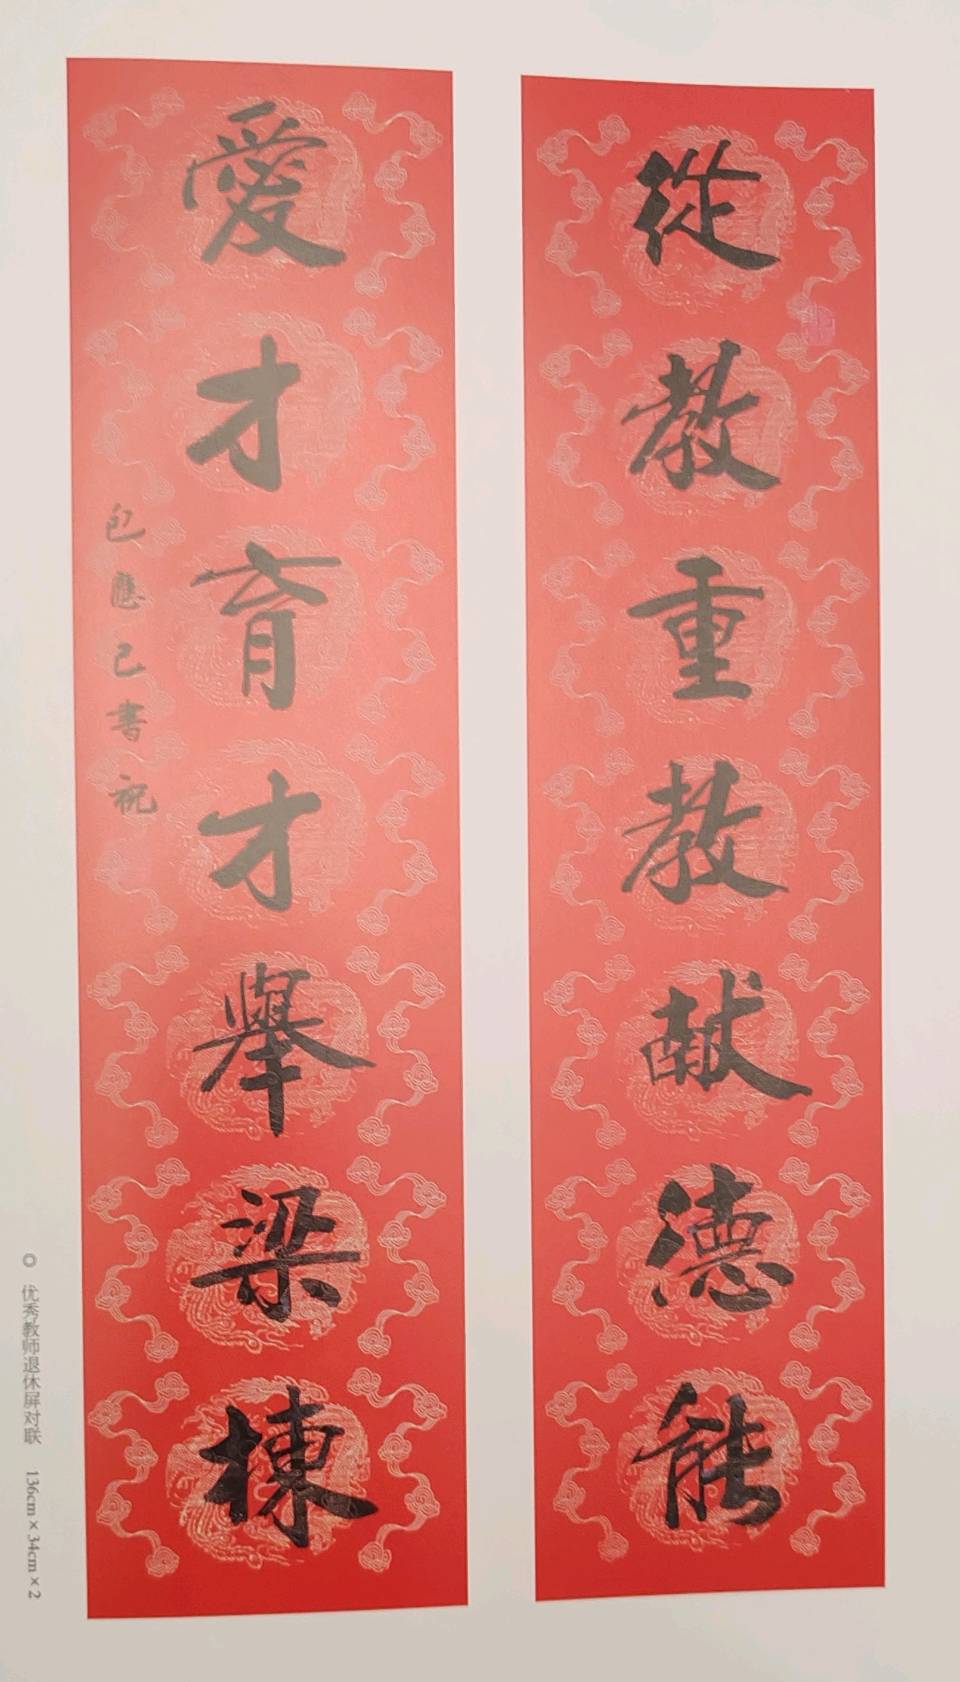 從教重教献德能
愛才育才舉梁棟
包應己書祝
◎ 优秀教师退休屏对联 136cm×34cm×2